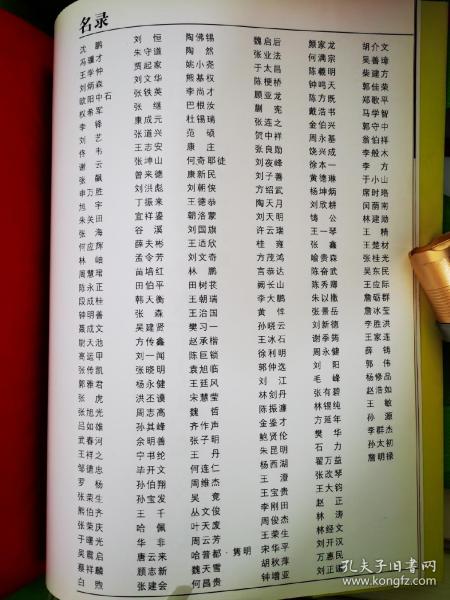 名录
沈鹏
冯骥才
王学仲
刘炳森
欧阳中石
权希军
李铎
刘艺
佟韦
谢云
张飙
申万胜
旭宇
朱关田
张海
何应辉
林岫
周慧珺
陈永正
段成桂
钟明善
聂成文
尉天池
高运甲
张传凯
郭雅君
张虎
张旭光
吕如雄
武春河
王祥之
邹德忠
罗杨
张荣生
熊伯齐
张荣庆
于曙光
吴震启
蔡祥麟
白煦
刘恒
朱守道
贾起家
刘文华
张铁英
张继
康成元
张道兴
王志安
张坤山
曾来德
刘洪彪
丁振来
宜祥鎏
谷溪
薛夫彬
孟令芳
苗培红
田伯平
韩天衡
张森
吴建贤
方传鑫
刘一闻
张晓明
杨永健
洪丕谟
周志高
孙其峰
余明善
宁书纶
毕开文
孙伯翔
孙宝发
王千
哈佩
华非
唐云来
顾志新
张建会
陶佛锡
陶然
姚小尧
熊基权
李尚才
巴根汝
杜锡瑞
范硕
康庄
何奇耶徒
康新民
刘朝侠
王德恭
朝洛蒙
刘国旗
王适欣
刘文奇
林鹏
田树苌
王朝瑞
王治国
樊习一
赵承楷
陈巨锁
袁旭临
王廷风
宋慧莹
魏哲
齐作声
张子明
王丹
何连仁
周维杰
吴竟
丛文俊
叶天废
周云芳
哈普都·隽明
魏天雪
何昌贵
魏启后
张业法
于太昌
陈梗桥
顾亚龙
蒯宪
张连之
贺中祥
张良勋
刘夜峰
刘子善
方绍武
陶天月
刘天明
许云瑞
桂雍
方茂鸿
言恭达
阙长山
李大鹏
黄惇
孙晓云
王冰石
徐利明
郭仲选
刘江
林剑丹
陈振濂
金鉴才
鲍贤伦
朱昆明
杨西湖
王澄
王宝贵
李刚田
周俊杰
王荣生
宋华平
胡秋萍
钟增亚
颜家龙
何满宗
陈羲明
钟鸣天
陈方既
戴浩书
金伯兴
周永基
饶兴成
徐本一
黄德琳
杨坤炳
刘欣耕
铸公
王一琴
张鑫
喻贵森
陈奋武
陈秀卿
朱以撒
张景岳
刘新德
谢季筠
周永健
刘阳
毛峰
张有碧
林锴纯
方延年
樊华
石力
翟万益
张改琴
王大钧
赵正
林涛
林经文
刘开汉
万惠民
胡介文
吴善璋
柴建方
郭佳荣
郑歌平
马学智
郭守中
翁怕祥
李般木
李方
于小山
席时珞
闵荫南
林建勋
王精
王楚材
张桂光
吴东民
王应际
詹砺群
詹冰莹
李胜洪
王家连
薛铸
郭伟
杨修品
赵浩如
王敏
孙源
李群杰
孙太初
詹明禄
孔夫子旧书网
www.kongfz.com